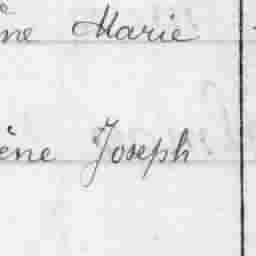 ne Marie
ène Joseph